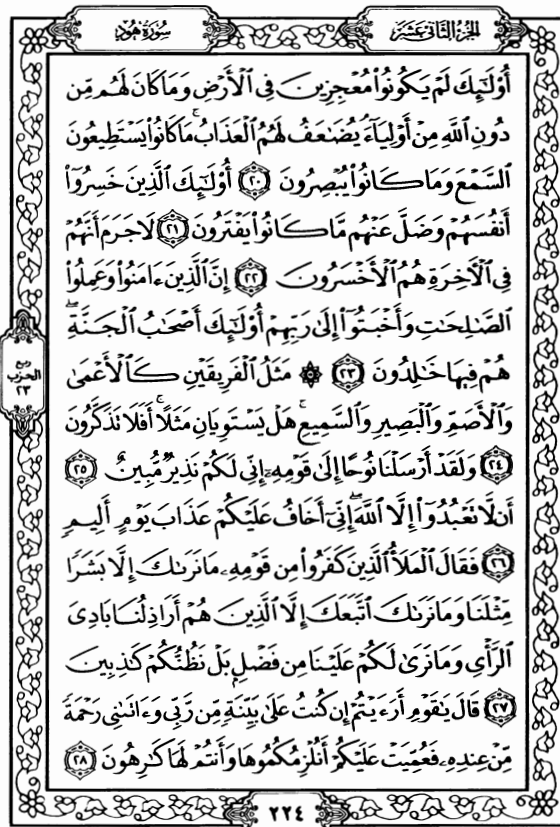 الجزء الثاني عشر
سورة هود
أُوْلَٰٓئِكَ لَمْ يَكُونُوا۟ مُعْجِزِينَ فِى ٱلْأَرْضِ وَمَا كَانَ لَهُم مِّن
دُونِ ٱللَّهِ مِنْ أَوْلِيَآءَ يُضَٰعَفُ لَهُمُ ٱلْعَذَابُ ۚ مَا كَانُوا۟ يَسْتَطِيعُونَ
ٱلسَّمْعَ وَمَا كَانُوا۟ يُبْصِرُونَ ﴿٢٠﴾ أُو۟لَٰٓئِكَ ٱلَّذِينَ خَسِرُوٓا۟
أَنفُسَهُمْ وَضَلَّ عَنْهُم مَّا كَانُوا۟ يَفْتَرُونَ ﴿٢١﴾ لَا جَرَمَ أَنَّهُمْ
فِى ٱلْءَاخِرَةِ هُمُ ٱلْأَخْسَرُونَ ﴿٢٢﴾ إِنَّ ٱلَّذِينَ ءَامَنُوا۟ وَعَمِلُوا۟
ٱلصَّٰلِحَٰتِ وَأَخْبَتُوٓا۟ إِلَىٰ رَبِّهِمْ أُو۟لَٰٓئِكَ أَصْحَٰبُ ٱلْجَنَّةِ ۖ
هُمْ فِيهَا خَٰلِدُونَ ﴿٢٣﴾ ۞ مَثَلُ ٱلْفَرِيقَيْنِ كَٱلْأَعْمَىٰ
وَٱلْأَصَمِّ وَٱلْبَصِيرِ وَٱلسَّمِيعِ ۚ هَلْ يَسْتَوِيَانِ مَثَلًا ۚ أَفَلَا تَذَكَّرُونَ
﴿٢٤﴾ وَلَقَدْ أَرْسَلْنَا نُوحًا إِلَىٰ قَوْمِهِۦٓ إِنِّى لَكُمْ نَذِيرٌ مُّبِينٌ ﴿٢٥﴾
أَن لَّا تَعْبُدُوٓا۟ إِلَّا ٱللَّهَ ۖ إِنِّىٓ أَخَافُ عَلَيْكُمْ عَذَابَ يَوْمٍ أَلِيمٍ
﴿٢٦﴾ فَقَالَ ٱلْمَلَأُ ٱلَّذِينَ كَفَرُوا۟ مِن قَوْمِهِۦ مَا نَرَىٰكَ إِلَّا بَشَرًا
مِّثْلَنَا وَمَا نَرَىٰكَ ٱتَّبَعَكَ إِلَّا ٱلَّذِينَ هُمْ أَرَاذِلُنَا بَادِىَ
ٱلرَّأْىِ وَمَا نَرَىٰ لَكُمْ عَلَيْنَا مِن فَضْلٍۭ بَلْ نَظُنُّكُمْ كَٰذِبِينَ
﴿٢٧﴾ قَالَ يَٰقَوْمِ أَرَءَيْتُمْ إِن كُنتُ عَلَىٰ بَيِّنَةٍ مِّن رَّبِّى وَءَاتَىٰنِى رَحْمَةً
مِّنْ عِندِهِۦ فَعُمِّيَتْ عَلَيْكُمْ أَنُلْزِمُكُمُوهَا وَأَنتُمْ لَهَا كَٰرِهُونَ ﴿٢٨﴾
ربع
الحزب
٢٣
٢٢٤